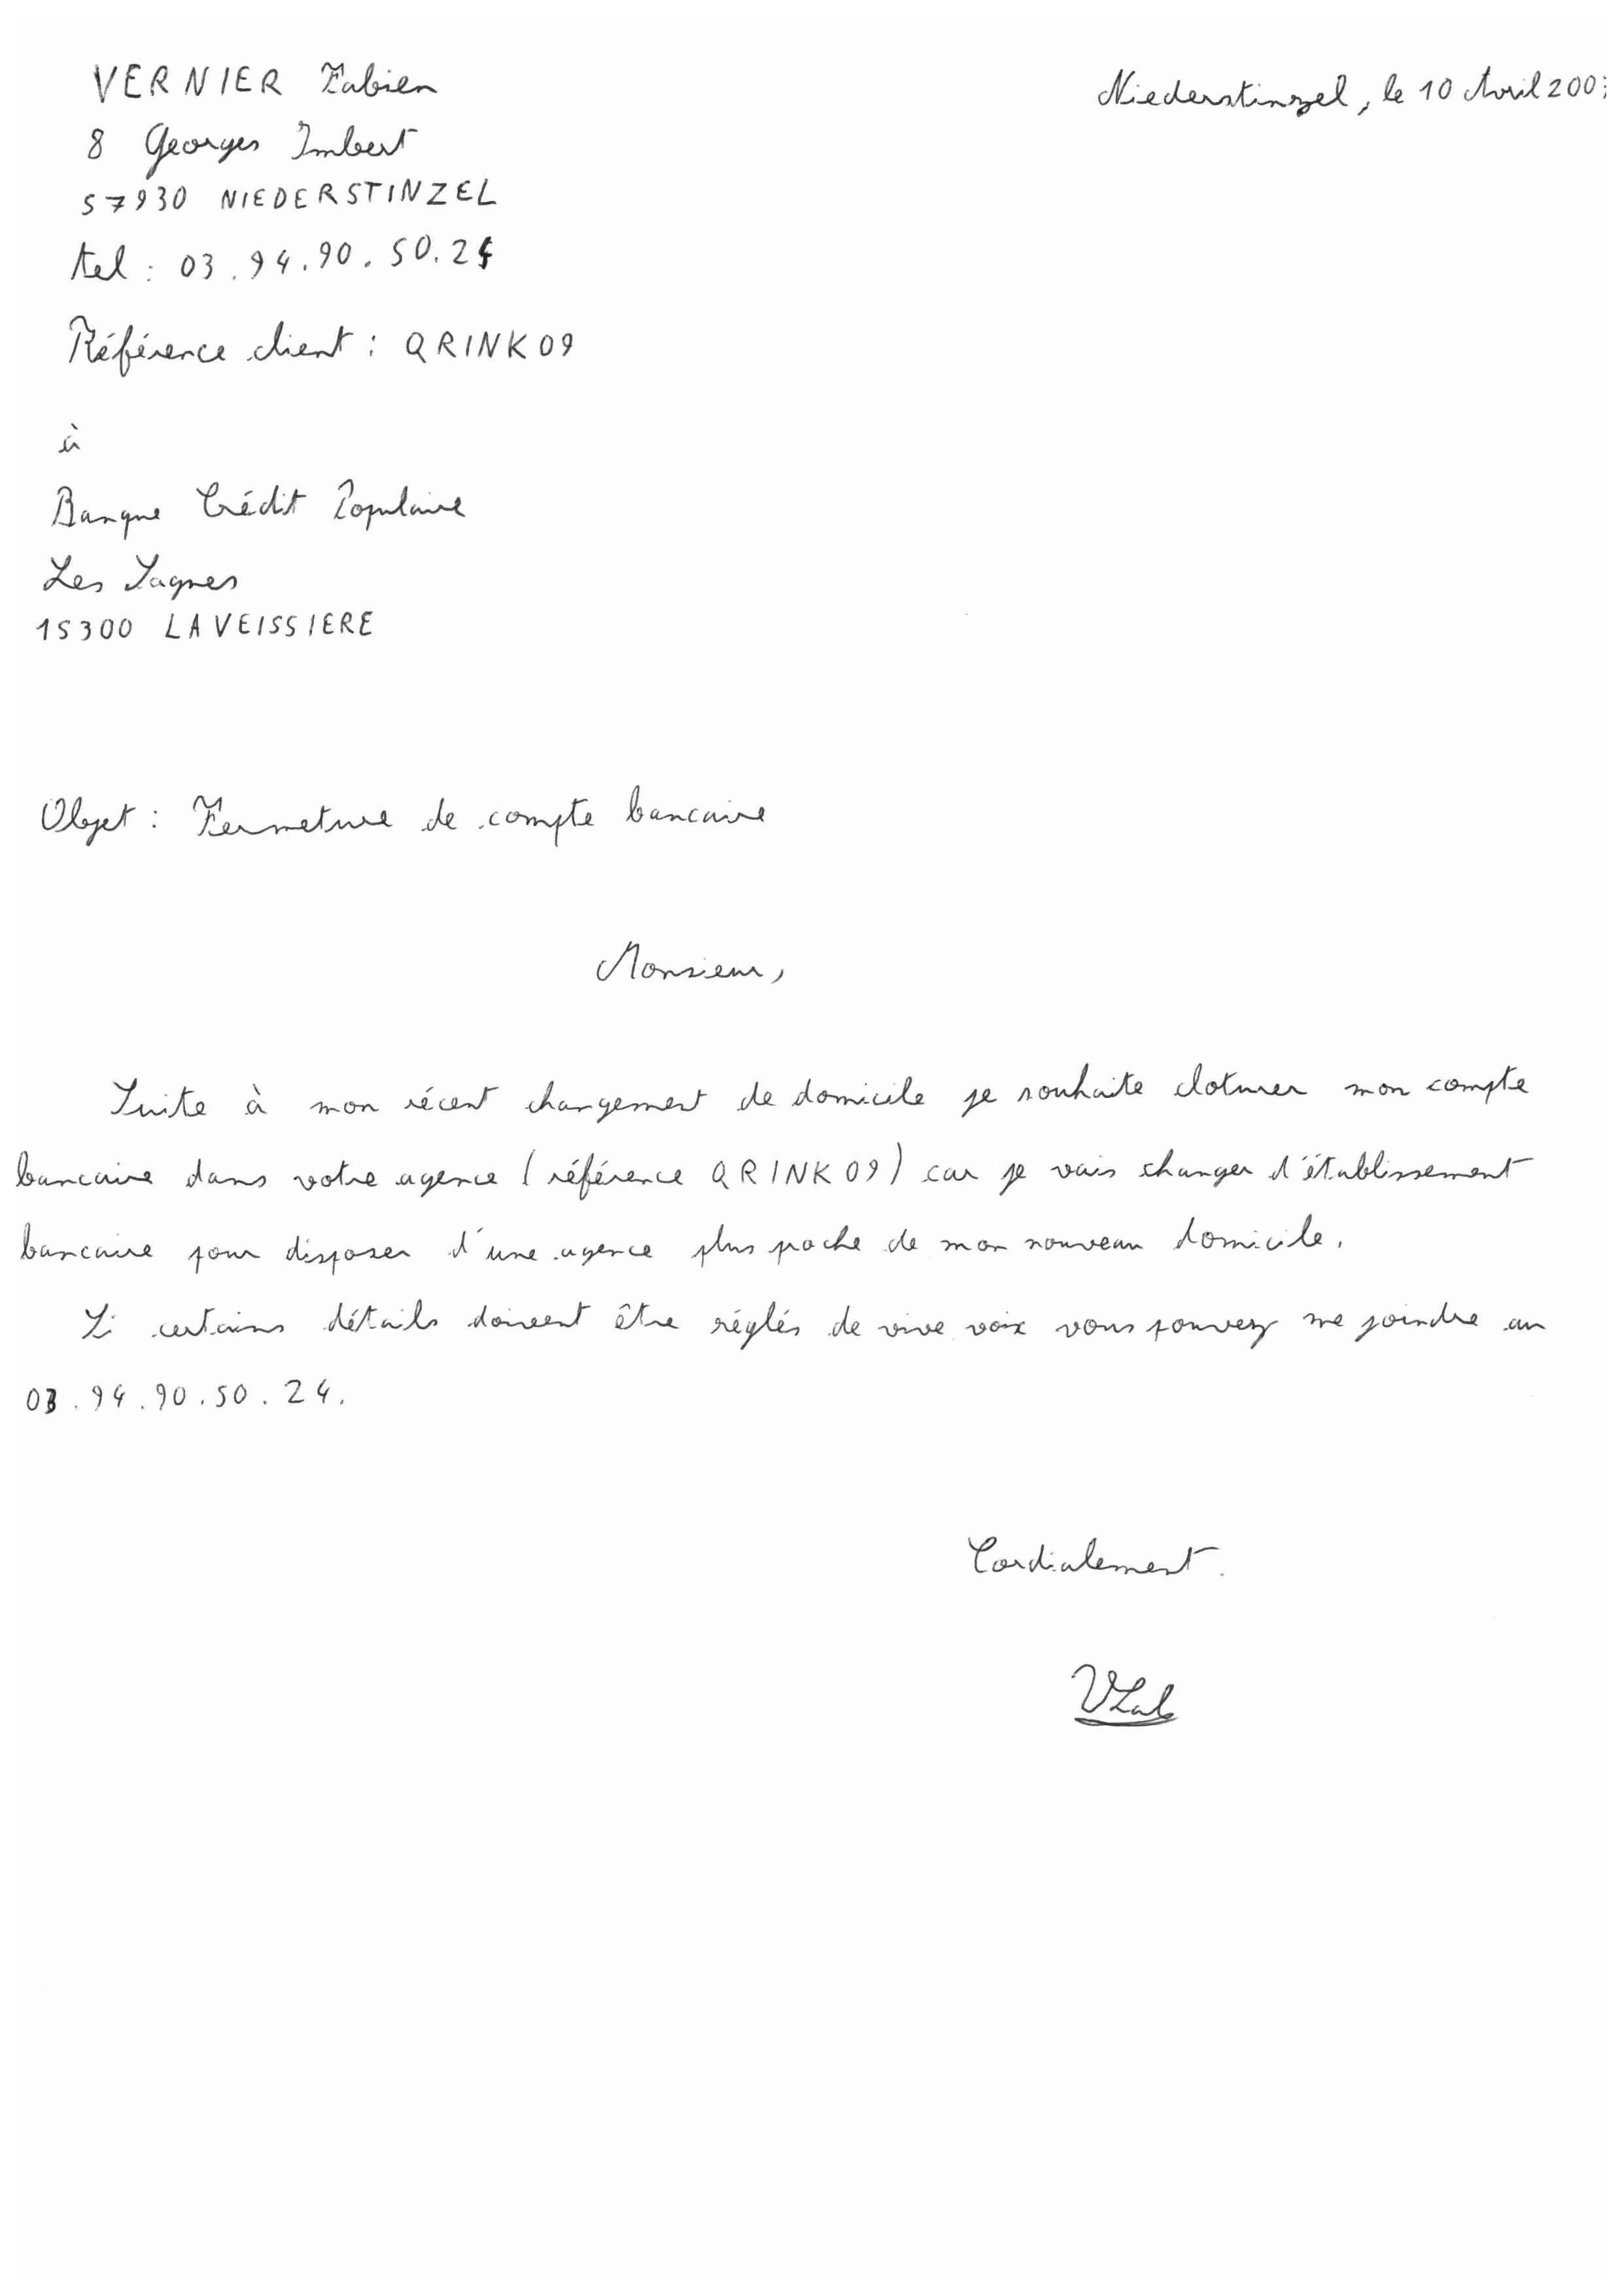 VERNIER Fabien
Niederstinzel, le 10 Avril 200
8 Georges Imbert
57930 NIEDERSTINZEL
tel : 03.94.90.50.24
Référence client : QRINK09
à
Banque Crédit Populaire
Les Sagnes
15300 LAVEISSIERE
Objet : Fermeture de compte bancaire
Monsieur,
Suite à mon récent changement de domicile je souhaite cloturer mon compte
bancaire dans votre agence (référence QRINK09) car je vais changer d'établissement
bancaire pour disposer d'une agence plus poche de mon nouveau domicile.
Si certains détails doivent être réglés de vive voix vous pouvez me joindre au
03.94.90.50.24.
Cordialement.